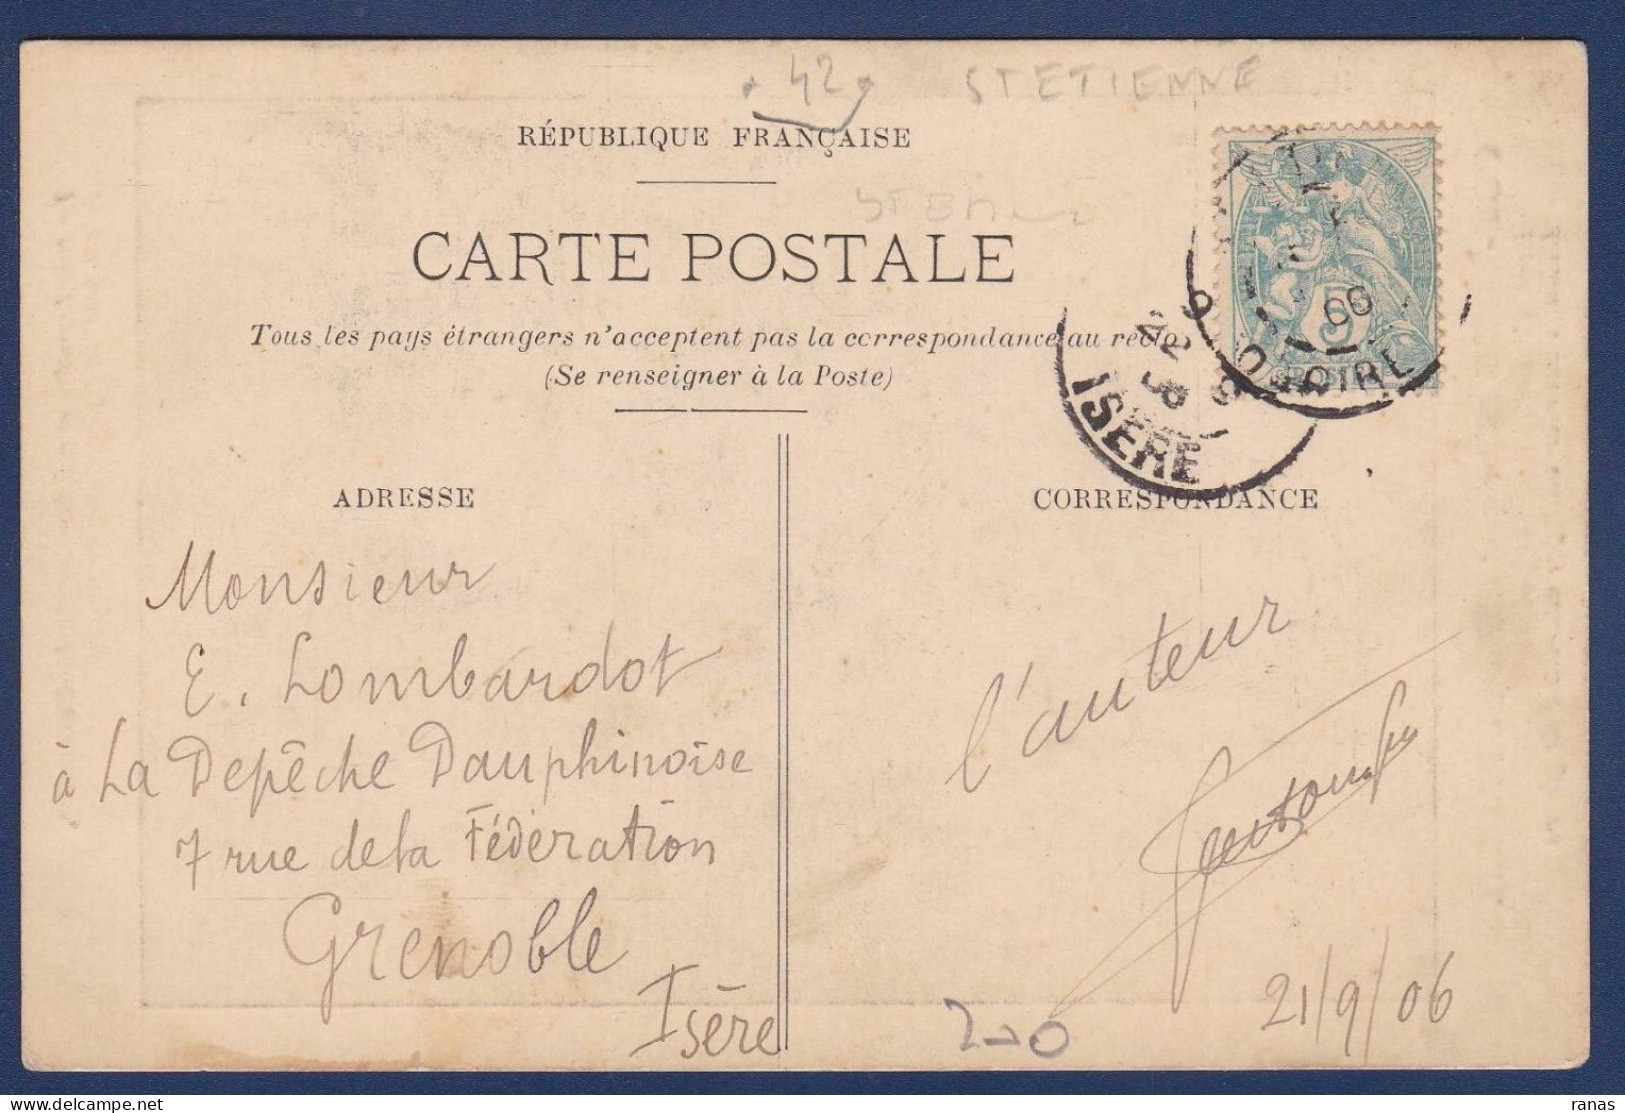 42 ST ETIENNE
RÉPUBLIQUE FRANÇAISE
CARTE POSTALE
Tous les pays étrangers n'acceptent pas la correspondance au recto
(Se renseigner à la Poste)
ISÈRE
LOIRE
06
5
ADRESSE
Monsieur
E. Lombardot
à La Depêche Dauphinoise
7 rue de la Fédération
Grenoble
Isère
CORRESPONDANCE
l'auteur
21/9/06
ranas